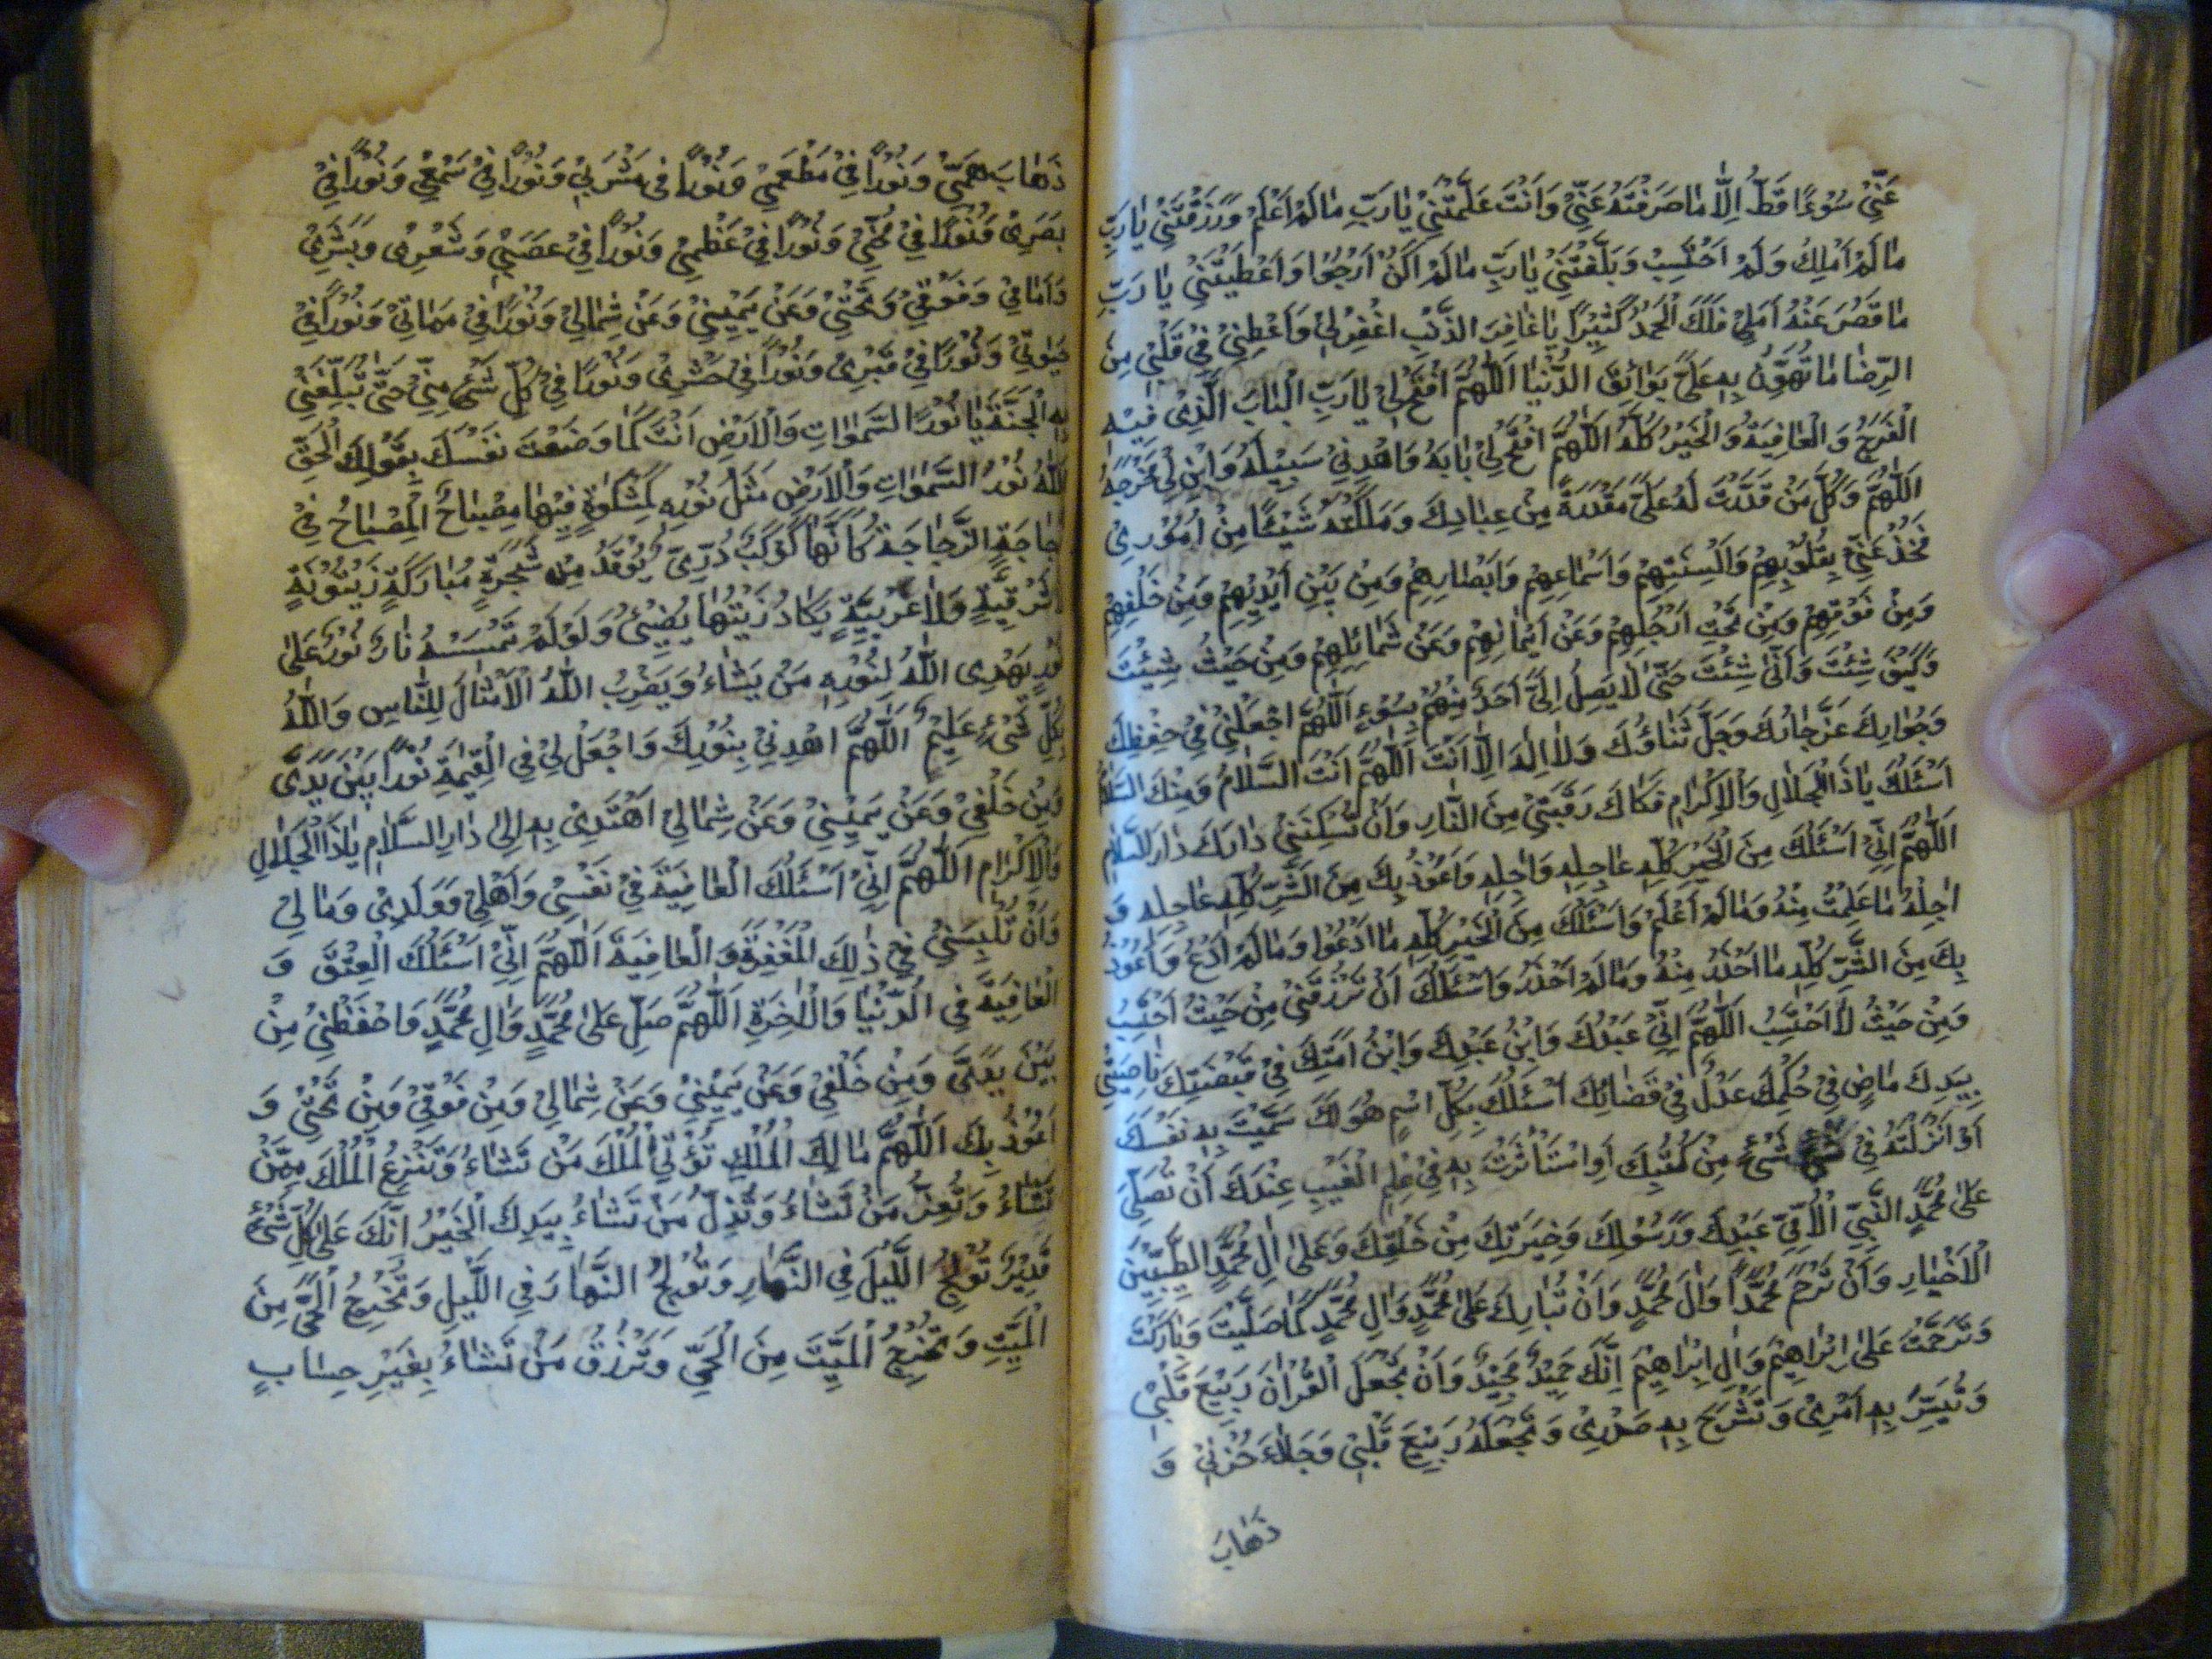 عَنِّي سُوءًا قَطُّ اِلَّا مَا صَرَفْتَهُ عَنِّي وَاَنْتَ عَلَّمْتَنِي يَا رَبِّ مَا لَمْ اَعْلَمْ وَرَزَقْتَنِي يَا رَبِّ
مَا لَمْ اَمْلِكْ وَلَمْ اَحْتَسِبْ وَبَلَّغْتَنِي يَا رَبِّ مَا لَمْ اَكُنْ اَرْجُوا وَاَعْطَيْتَنِي يَا رَبِّ
مَا قَصُرَ عَنْهُ اَمَلِي فَلَكَ الْحَمْدُ كَثِيرًا يَا غَافِرَ الذَّنْبِ اغْفِرْ لِي وَاَعْطِنِي فِي قَلْبِي مِنَ
الرِّضَا مَا تُهَوِّنُ بِهِ عَلَيَّ بَوَائِقَ الدُّنْيَا اَللّٰهُمَّ افْتَحْ لِي يَا رَبِّ الْبَابَ الَّذِي فِيهِ
الْفَرَجُ وَالْعَافِيَةُ وَالْخَيْرُ كُلُّهُ اَللّٰهُمَّ افْتَحْ لِي بَابَهُ وَاهْدِنِي سَبِيلَهُ وَابْنِ لِي مَخْرَجَهُ
اَللّٰهُمَّ وَكُلُّ مَنْ قَدَّرْتَ لَهُ عَلَيَّ مَقْدُرَةً مِنْ عِبَادِكَ وَمَلَّكْتَهُ شَيْئًا مِنْ اُمُورِي
فَخُذْ عَنِّي بِقُلُوبِهِمْ وَاَلْسِنَتِهِمْ وَاَسْمَاعِهِمْ وَاَبْصَارِهِمْ وَمِنْ بَيْنِ اَيْدِيهِمْ وَمِنْ خَلْفِهِمْ
وَمِنْ فَوْقِهِمْ وَمِنْ تَحْتِ اَرْجُلِهِمْ وَعَنْ اَيْمَانِهِمْ وَعَنْ شَمَائِلِهِمْ وَمِنْ حَيْثُ شِئْتَ
وَكَيْفَ شِئْتَ وَاَنّٰى شِئْتَ حَتّٰى لَا يَصِلَ اِلَيَّ اَحَدٌ مِنْهُمْ بِسُوءٍ اَللّٰهُمَّ اجْعَلْنِي فِي حِفْظِكَ
وَجِوَارِكَ عَزَّ جَارُكَ وَجَلَّ ثَنَاؤُكَ وَلَا اِلٰهَ اِلَّا اَنْتَ اَللّٰهُمَّ اَنْتَ السَّلَامُ وَمِنْكَ السَّلَامُ
اَسْئَلُكَ يَا ذَا الْجَلَالِ وَالْاِكْرَامِ فَكَاكَ رَقَبَتِي مِنَ النَّارِ وَاَنْ تُسْكِنَنِي دَارَكَ دَارَ السَّلَامِ
اَللّٰهُمَّ اِنِّي اَسْئَلُكَ مِنَ الْخَيْرِ كُلِّهِ عَاجِلِهِ وَاٰجِلِهِ وَاَعُوذُ بِكَ مِنَ الشَّرِّ كُلِّهِ عَاجِلِهِ وَ
اٰجِلِهِ مَا عَلِمْتُ مِنْهُ وَمَا لَمْ اَعْلَمْ وَاَسْئَلُكَ مِنَ الْخَيْرِ كُلِّهِ مَا اَدْعُوا وَمَا لَمْ اَدْعُ وَاَعُوذُ
بِكَ مِنَ الشَّرِّ كُلِّهِ مَا اَحْذَرُ مِنْهُ وَمَا لَمْ اَحْذَرْ وَاَسْئَلُكَ اَنْ تَرْزُقَنِي مِنْ حَيْثُ اَحْتَسِبُ
وَمِنْ حَيْثُ لَا اَحْتَسِبُ اَللّٰهُمَّ اِنِّي عَبْدُكَ وَابْنُ عَبْدِكَ وَابْنُ اَمَتِكَ فِي قَبْضَتِكَ نَاصِيَتِي
بِيَدِكَ مَاضٍ فِيَّ حُكْمُكَ عَدْلٌ فِيَّ قَضَائُكَ اَسْئَلُكَ بِكُلِّ اسْمٍ هُوَ لَكَ سَمَّيْتَ بِهِ نَفْسَكَ
اَوْ اَنْزَلْتَهُ فِي شَيْءٍ مِنْ كُتُبِكَ اَوِ اسْتَأْثَرْتَ بِهِ فِي عِلْمِ الْغَيْبِ عِنْدَكَ اَنْ تُصَلِّيَ
عَلٰى مُحَمَّدٍ النَّبِيِّ الْاُمِّيِّ عَبْدِكَ وَرَسُولِكَ وَخِيَرَتِكَ مِنْ خَلْقِكَ وَعَلٰى اٰلِ مُحَمَّدٍ الطَّيِّبِينَ
الْاَخْيَارِ وَاَنْ تَرْحَمَ مُحَمَّدًا وَاٰلَ مُحَمَّدٍ وَاَنْ تُبَارِكَ عَلٰى مُحَمَّدٍ وَاٰلِ مُحَمَّدٍ كَمَا صَلَّيْتَ وَبَارَكْتَ
وَتَرَحَّمْتَ عَلٰى اِبْرَاهِيمَ وَاٰلِ اِبْرَاهِيمَ اِنَّكَ حَمِيدٌ مَجِيدٌ وَاَنْ تَجْعَلَ الْقُرْاٰنَ رَبِيعَ قَلْبِي
وَتُيَسِّرَ بِهِ اَمْرِي وَتَشْرَحَ بِهِ صَدْرِي وَتَجْعَلَهُ رَبِيعَ قَلْبِي وَجَلَاءَ حُزْنِي وَ
ذَهَابَ
ذَهَابَ هَمِّي وَنُورًا فِي مَطْعَمِي وَنُورًا فِي مَشْرَبِي وَنُورًا فِي سَمْعِي وَنُورًا فِي
بَصَرِي وَنُورًا فِي مُخِّي وَنُورًا فِي عَظْمِي وَنُورًا فِي عَصَبِي وَشَعْرِي وَبَشَرِي
وَاَمَامِي وَفَوْقِي وَتَحْتِي وَعَنْ يَمِينِي وَعَنْ شِمَالِي وَنُورًا فِي مَمَاتِي وَنُورًا فِي
حَيٰوتِي وَنُورًا فِي قَبْرِي وَنُورًا فِي حَشْرِي وَنُورًا فِي كُلِّ شَيْءٍ مِنِّي حَتّٰى تُبَلِّغَنِي
بِهِ الْجَنَّةَ يَا نُورَ السَّمٰوَاتِ وَالْاَرْضِ اَنْتَ كَمَا وَصَفْتَ نَفْسَكَ بِقَوْلِكَ الْحَقِّ
اَللّٰهُ نُورُ السَّمٰوَاتِ وَالْاَرْضِ مَثَلُ نُورِهِ كَمِشْكٰوةٍ فِيهَا مِصْبَاحٌ الْمِصْبَاحُ فِي
زُجَاجَةٍ الزُّجَاجَةُ كَاَنَّهَا كَوْكَبٌ دُرِّيٌّ يُوقَدُ مِنْ شَجَرَةٍ مُبَارَكَةٍ زَيْتُونَةٍ
لَا شَرْقِيَّةٍ وَلَا غَرْبِيَّةٍ يَكَادُ زَيْتُهَا يُضِيءُ وَلَوْ لَمْ تَمْسَسْهُ نَارٌ نُورٌ عَلٰى
نُورٍ يَهْدِي اللّٰهُ لِنُورِهِ مَنْ يَشَاءُ وَيَضْرِبُ اللّٰهُ الْاَمْثَالَ لِلنَّاسِ وَاللّٰهُ
بِكُلِّ شَيْءٍ عَلِيمٌ اَللّٰهُمَّ اهْدِنِي بِنُورِكَ وَاجْعَلْ لِي فِي الْقِيٰمَةِ نُورًا بَيْنَ يَدَيَّ
وَمِنْ خَلْفِي وَعَنْ يَمِينِي وَعَنْ شِمَالِي اَهْتَدِي بِهِ اِلٰى دَارِ السَّلَامِ يَا ذَا الْجَلَالِ
وَالْاِكْرَامِ اَللّٰهُمَّ اِنِّي اَسْئَلُكَ الْعَافِيَةَ فِي نَفْسِي وَاَهْلِي وَوَلَدِي وَمَالِي
وَاَنْ تُلْبِسَنِي فِي ذٰلِكَ الْمَغْفِرَةَ وَالْعَافِيَةَ اَللّٰهُمَّ اِنِّي اَسْئَلُكَ الْعِتْقَ وَ
الْعَافِيَةَ فِي الدُّنْيَا وَالْاٰخِرَةِ اَللّٰهُمَّ صَلِّ عَلٰى مُحَمَّدٍ وَاٰلِ مُحَمَّدٍ وَاحْفَظْنِي مِنْ
بَيْنَ يَدَيَّ وَمِنْ خَلْفِي وَعَنْ يَمِينِي وَعَنْ شِمَالِي وَمِنْ فَوْقِي وَمِنْ تَحْتِي وَ
اَعُوذُ بِكَ اَللّٰهُمَّ مَالِكَ الْمُلْكِ تُؤْتِي الْمُلْكَ مَنْ تَشَاءُ وَتَنْزِعُ الْمُلْكَ مِمَّنْ
تَشَاءُ وَتُعِزُّ مَنْ تَشَاءُ وَتُذِلُّ مَنْ تَشَاءُ بِيَدِكَ الْخَيْرُ اِنَّكَ عَلٰى كُلِّ شَيْءٍ
قَدِيرٌ تُولِجُ اللَّيْلَ فِي النَّهَارِ وَتُولِجُ النَّهَارَ فِي اللَّيْلِ وَتُخْرِجُ الْحَيَّ مِنَ
الْمَيِّتِ وَتُخْرِجُ الْمَيِّتَ مِنَ الْحَيِّ وَتَرْزُقُ مَنْ تَشَاءُ بِغَيْرِ حِسَابٍ